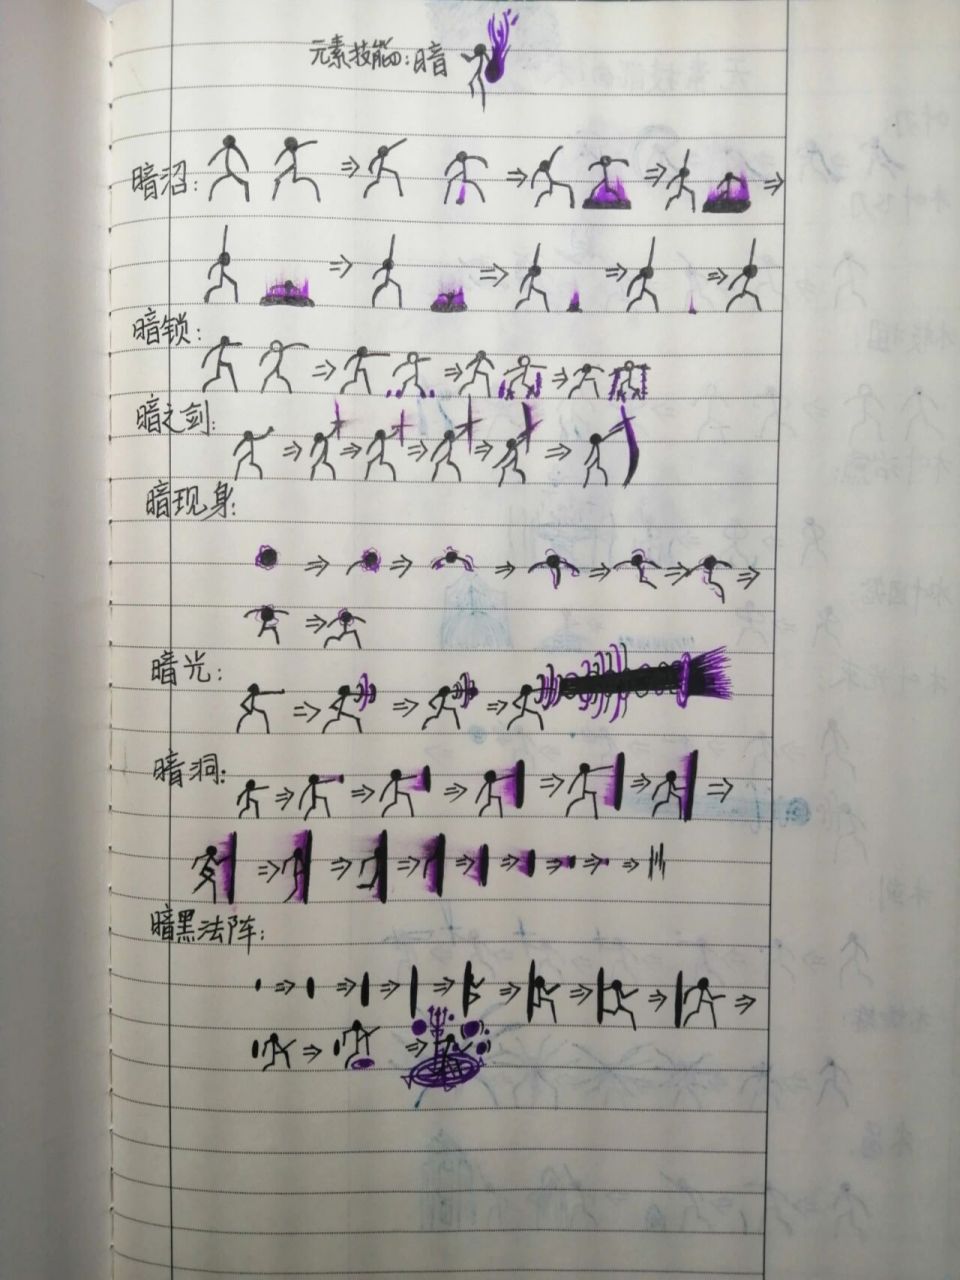 元素技能四:暗
暗沼:
暗锁:
暗之剑:
暗现身:
暗光:
暗洞:
暗黑法阵: